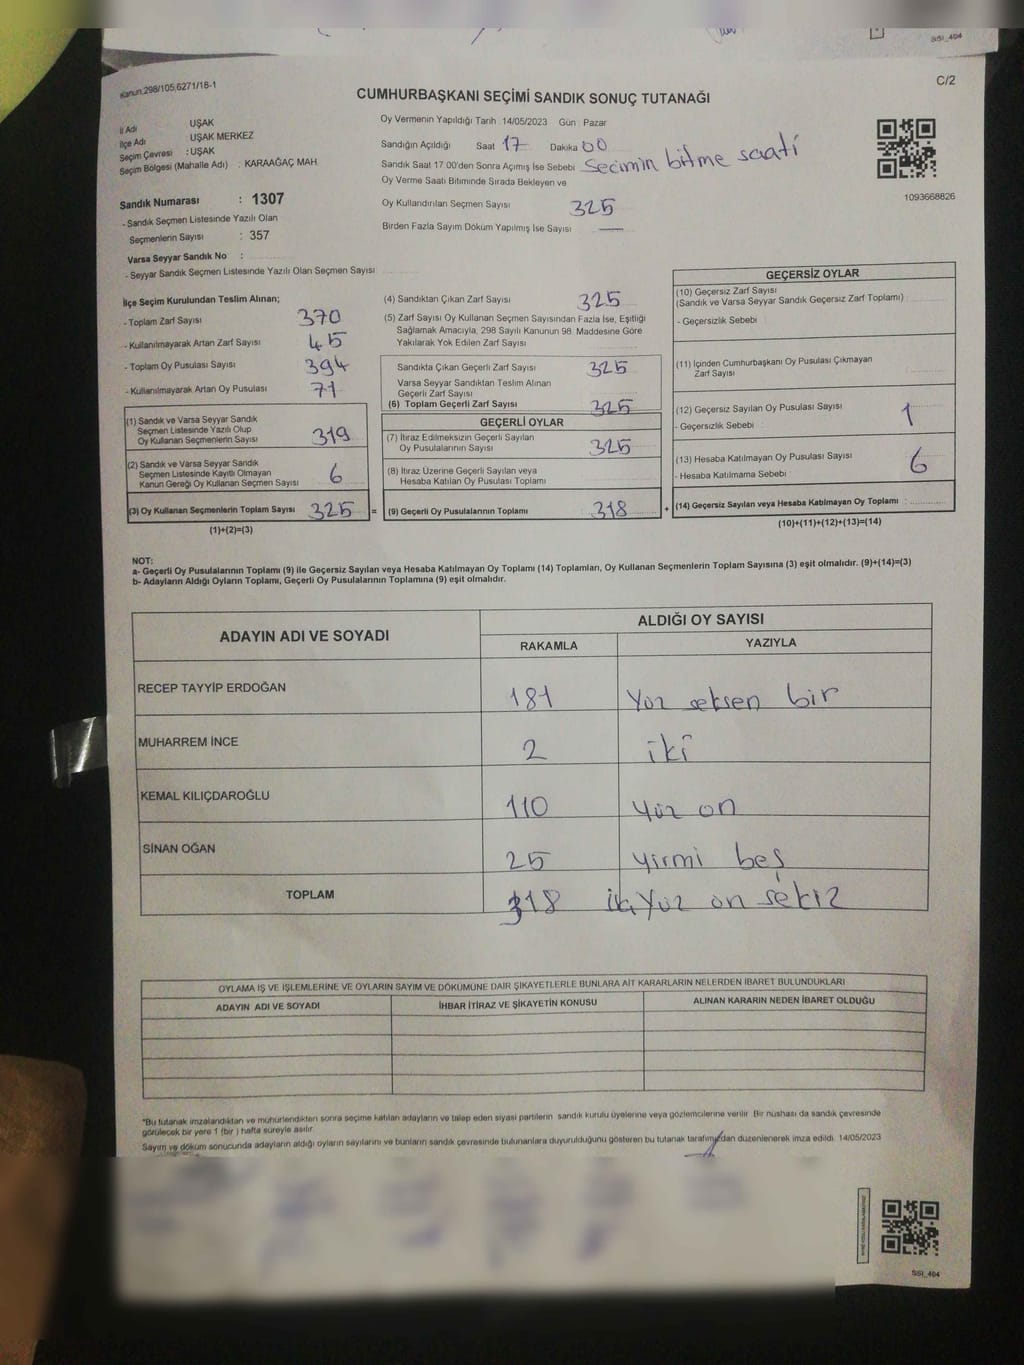 SSI_404
Kanun:298/105,6271/18-1
C/2
CUMHURBAŞKANI SEÇİMİ SANDIK SONUÇ TUTANAĞI
İl Adı UŞAK
İlçe Adı UŞAK MERKEZ
Seçim Çevresi : UŞAK
Seçim Bölgesi (Mahalle Adı) : KARAAĞAÇ MAH.
Oy Vermenin Yapıldığı Tarih :14/05/2023 Gün : Pazar
Sandığın Açıldığı Saat 17 Dakika 00
Sandık Saat 17:00'den Sonra Açımış İse Sebebi Secimin bitme saati
Oy Verme Saati Bitiminde Sırada Bekleyen ve
Oy Kullandırılan Seçmen Sayısı 325
Birden Fazla Sayım Döküm Yapılmış İse Sayısı —
1093668826
Sandık Numarası : 1307
- Sandık Seçmen Listesinde Yazılı Olan
Seçmenlerin Sayısı : 357
Varsa Seyyar Sandık No :
- Seyyar Sandık Seçmen Listesinde Yazılı Olan Seçmen Sayısı
İlçe Seçim Kurulundan Teslim Alınan;
- Toplam Zarf Sayısı 370
- Kullanılmayarak Artan Zarf Sayısı 45
- Toplam Oy Pusulası Sayısı 394
- Kullanılmayarak Artan Oy Pusulası 71
(1) Sandık ve Varsa Seyyar Sandık
Seçmen Listesinde Yazılı Olup
Oy Kullanan Seçmenlerin Sayısı 319
(2) Sandık ve Varsa Seyyar Sandık
Seçmen Listesinde Kayıtlı Olmayan
Kanun Gereği Oy Kullanan Seçmen Sayısı 6
(3) Oy Kullanan Seçmenlerin Toplam Sayısı 325 =
(1)+(2)=(3)
(4) Sandıktan Çıkan Zarf Sayısı 325
(5) Zarf Sayısı Oy Kullanan Seçmen Sayısından Fazla İse, Eşitliği
Sağlamak Amacıyla, 298 Sayılı Kanunun 98. Maddesine Göre
Yakılarak Yok Edilen Zarf Sayısı
Sandıkta Çıkan Geçerli Zarf Sayısı 325
Varsa Seyyar Sandıktan Teslim Alınan
Geçerli Zarf Sayısı
(6) Toplam Geçerli Zarf Sayısı 325
GEÇERLİ OYLAR
(7) İtiraz Edilmeksizin Geçerli Sayılan
Oy Pusulalarının Sayısı 325
(8) İtiraz Üzerine Geçerli Sayılan veya
Hesaba Katılan Oy Pusulası Toplamı
(9) Geçerli Oy Pusulalarının Toplamı 318 +
GEÇERSİZ OYLAR
(10) Geçersiz Zarf Sayısı
(Sandık ve Varsa Seyyar Sandık Geçersiz Zarf Toplamı)
- Geçersizlik Sebebi :
(11) İçinden Cumhurbaşkanı Oy Pusulası Çıkmayan
Zarf Sayısı
(12) Geçersiz Sayılan Oy Pusulası Sayısı 1
- Geçersizlik Sebebi
(13) Hesaba Katılmayan Oy Pusulası Sayısı 6
- Hesaba Katılmama Sebebi
(14) Geçersiz Sayılan veya Hesaba Katılmayan Oy Toplamı :
(10)+(11)+(12)+(13)=(14)
NOT:
a- Geçerli Oy Pusulalarının Toplamı (9) ile Geçersiz Sayılan veya Hesaba Katılmayan Oy Toplamı (14) Toplamları, Oy Kullanan Seçmenlerin Toplam Sayısına (3) eşit olmalıdır. (9)+(14)=(3)
b- Adayların Aldığı Oyların Toplamı, Geçerli Oy Pusulalarının Toplamına (9) eşit olmalıdır.
ADAYIN ADI VE SOYADI
ALDIĞI OY SAYISI
RAKAMLA YAZIYLA
RECEP TAYYİP ERDOĞAN 181 Yüz seksen bir
MUHARREM İNCE 2 iki
KEMAL KILIÇDAROĞLU 110 yüz on
SİNAN OĞAN 25 yirmi beş
TOPLAM 318 yüz on sekiz
OYLAMA İŞ VE İŞLEMLERİNE VE OYLARIN SAYIM VE DÖKÜMÜNE DAİR ŞİKAYETLERLE BUNLARA AİT KARARLARIN NELERDEN İBARET BULUNDUKLARI
ADAYIN ADI VE SOYADI İHBAR İTİRAZ VE ŞİKAYETİN KONUSU ALINAN KARARIN NEDEN İBARET OLDUĞU
*Bu tutanak imzalandıktan ve mühürlendikten sonra seçime katılan adayların ve talep eden siyasi partilerin sandık kurulu üyelerine veya gözlemcilerine verilir. Bir nüshası da sandık çevresinde
görülecek bir yere 1 (bir ) hafta süreyle asılır.
Sayım ve döküm sonucunda adayların aldığı oyların sayılarını ve bunların sandık çevresinde bulunanlara duyurulduğunu gösteren bu tutanak tarafımızdan düzenlenerek imza edildi. 14/05/2023
SSI_404